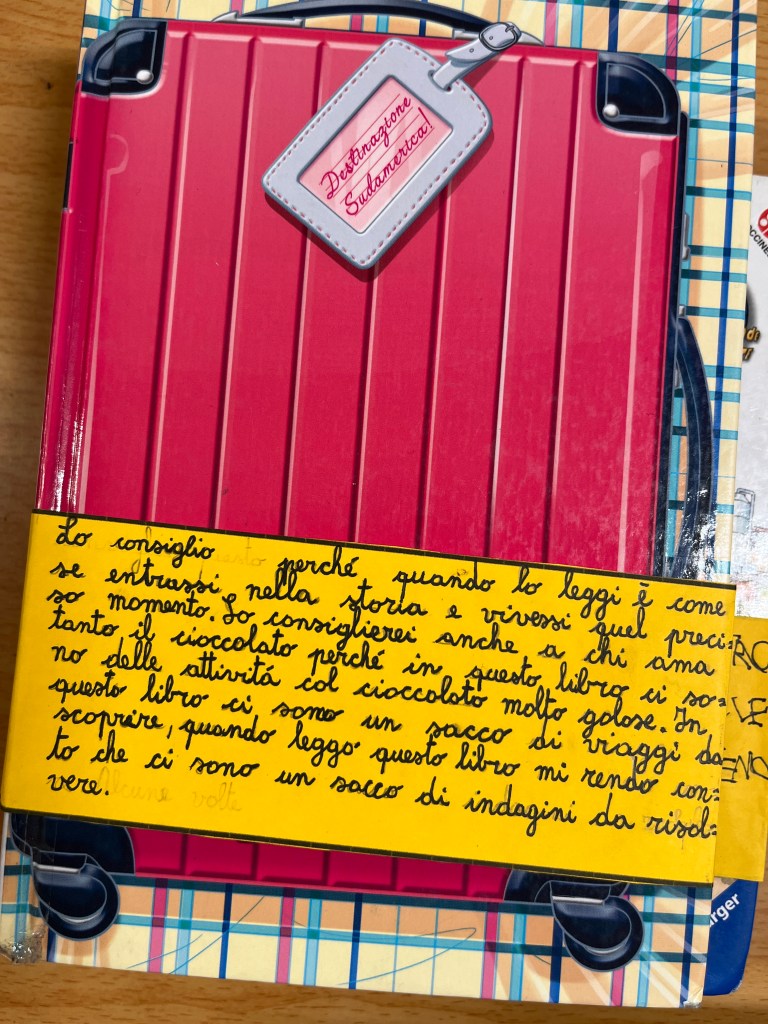 Destinazione
Sudamerica!
Lo consiglio perché quando lo leggi è come
se entrassi nella storia e vivessi quel preci=
so momento. Lo consiglierei anche a chi ama
tanto il cioccolato perché in questo libro ci so=
no delle attività col cioccolato molto golose. In
questo libro ci sono un sacco di viaggi da
scoprire, quando leggo questo libro mi rendo con=
to che ci sono un sacco di indagini da risol=
vere.
Alcune volte